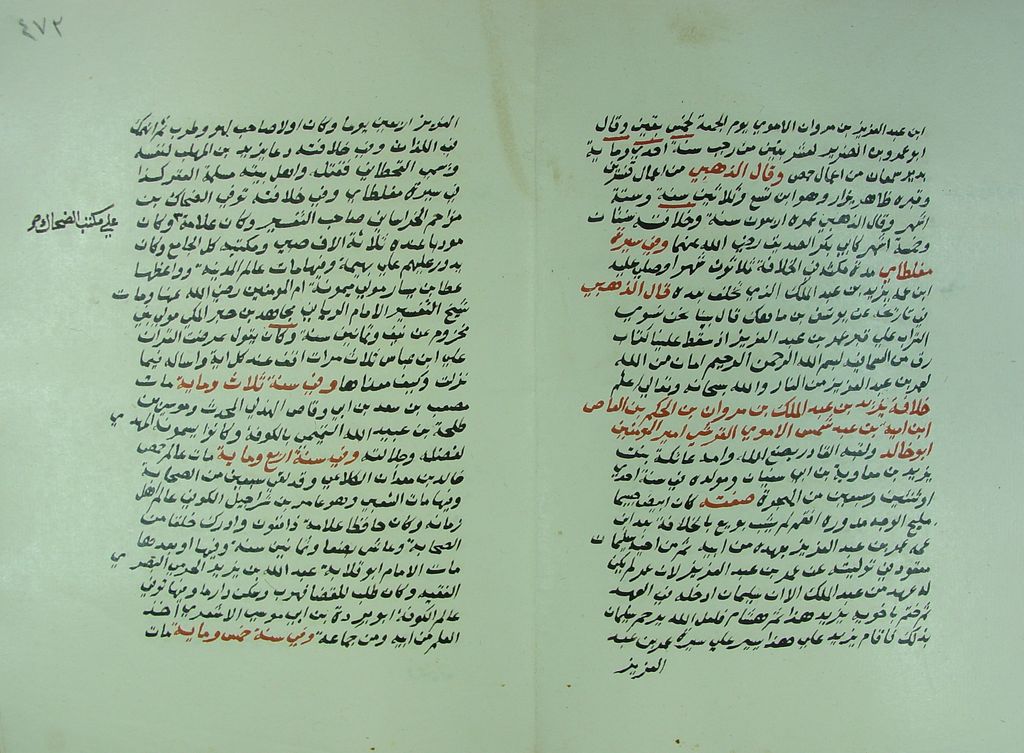 ٤٧٢
ابن عبد العزيز بن مروان الاموي يوم الجمعة لخمس بقين وقال
ابو عمرو بن الضرير لعشر بقين من رجب سنة احدي وماية
بدير سمعان من اعمال حمص وقال الذهبي من اعمال قنسرين
وقبره ظاهر يزار وهو ابن تسع وثلاثين سنة وستة
اشهر وقال الذهبي عمره اربعون سنة وخلافته سنتان
وخمسة اشهر كابي بكر الصديق رضي الله عنهما وفي سيرة
مغلطاي مدة مكثه في الخلافة ثلاثون شهرا وصلي عليه
ابن عمه يزيد بن عبد الملك الذي تخلف بعده قال الذهبي
في تاريخه عن يوسف بن ماهك قال بينا نحن نسوي
التراب علي قبر عمر بن عبد العزيز اذ سقط علينا كتاب
رق من السماء فيه بسم الله الرحمن الرحيم امان من الله
لعمر بن عبد العزيز من النار والله سبحانه وتعالي اعلم
خلافة يزيد بن عبد الملك بن مروان بن الحكم بن العاص
ابن امية بن عبد شمس الاموي القرشي امير المومنين
ابو خالد ولقبه القادر بصنع الله وامه عاتكة بنت
يزيد بن معاوية بن ابي سفيان ومولده في سنة احدي
او اثنتين وسبعين من الهجرة صفته كان ابيض جسيما
مليح الوجه مدوره افقم لم يشب بويع با خلافة بعد ابن
عمه عمر بن عبد العزيز بعهده من ابيه ثم من اخيه سليمان
معقود في توليته عن عمر بن عبد العزيز لان عمر لم يكن
له عهد من عبد الملك الا ان سليمان ادخله في العهد
ثم ختم باخويه يزيد هذا ثم هشام فلعل الله يرحم سليمان
بذلك فاقام يزيد علي هذا يسير علي سيرة عمر بن عبد
العزيز
العزيز اربعين يوما وكان اولا صاحب لهو وطرب ثم انهمك
في اللذات وفي خلافته دعا يزيد بن المهلب لنفسه
وتسمي القحطاني فقتله واهل بيته مسلمة العقر كذا
في سيرة مغلطاي وفي خلافته توفي الضحاك بن
مزاحم الخراساني صاحب التفسير وكان علامة وكان
مودبا عنده ثلاثة الاف صبي ومكتبه كل الجامع وكان
يدور عليهم علي بهيمة وفيها مات عالم المدينة وواعظها
عطا بن يسار مولي ميمونة ام المومنين رضي الله عنها ومات
شيخ التفسير الامام الرباني مجاهد بن جبر المكي مولي بني
مخزوم عن نيف وثمانين سنة وكان يقول عرضت القران
علي ابن عباس ثلاث مرات اقف عند كل اية واساله فيما
نزلت وكيف معناها وفي سنة ثلاث وماية مات
مصعب بن سعد بن ابي وقاص الزهري المحدث وموسي بن
طلحة بن عبيد الله التيمي بالكوفة وكانوا يسمونه المهدي
لفضله وجلالته وفي سنة اربع وماية مات عالم حمص
خالد بن معدان الكلاعي وقد لقي سبعين من الصحابة
وفيها مات الشعبي وهو عامر بن شراحيل الكوفي عالم اهل
زمانه وكان حافظا علامة ذا فنون وادرك خلقا من
الصحابة وعاش بضعا وثمانين سنة وفيها او بعدها
مات الامام ابو قلابة عبد الله بن يزيد الجرمي البصري
الفقيه وكان طلب للقضا فهرب وسكن داريا وفيها توفي
عالم الكوفة ابو بردة بن ابي موسي الاشعري اخذ
العلم عن ابيه وعن جماعة وفي سنة خمس وماية مات
علي مكتب الضحاك